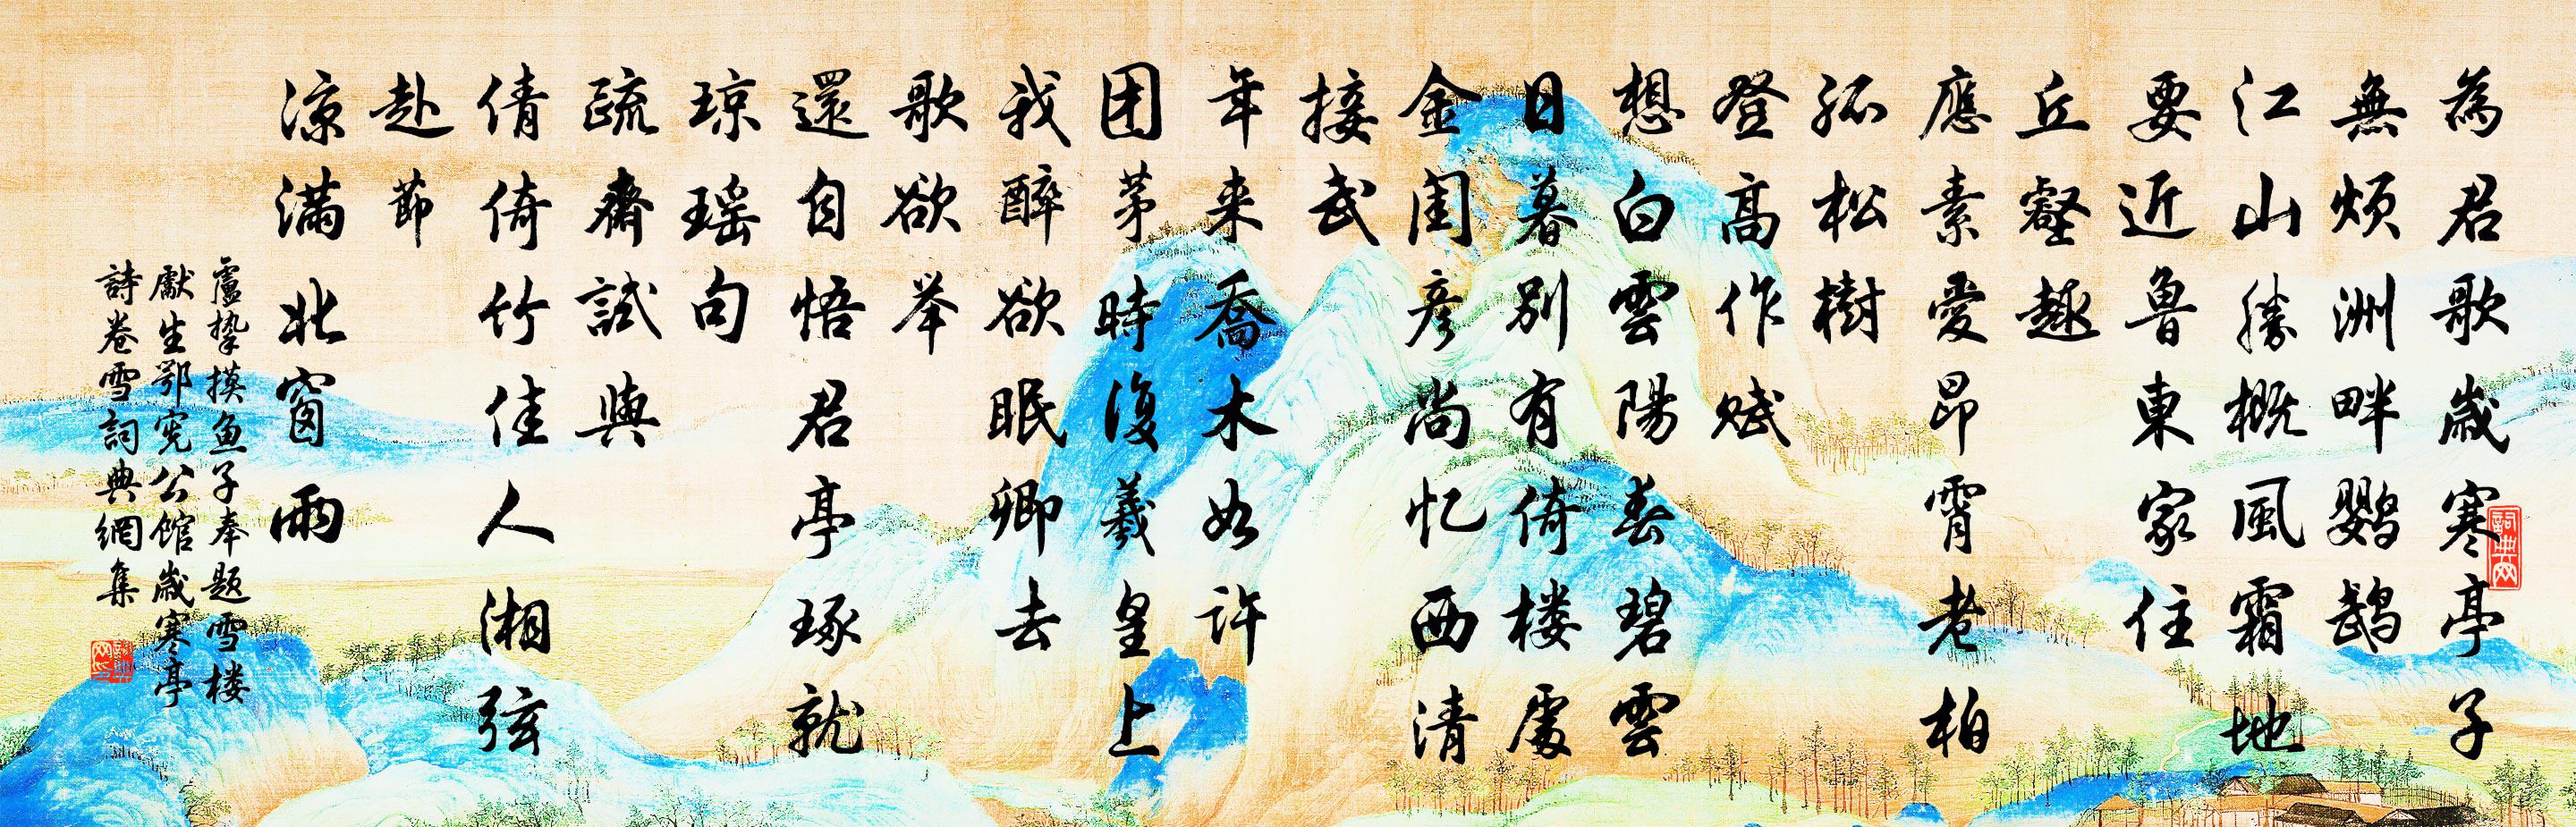 為君歌歲寒亭子
無煩洲畔鸚鵡
江山勝概風霜地
要近魯東家住
丘壑趣
應素愛昂霄老柏
孤松樹
登高作賦
想白雲陽春碧雲
日暮別有倚楼處
金閨彦尚忆西清
接武
年来喬木如许
团茅時復羲皇上
我醉欲眠卿去
歌欲举
還自悟君亭琢就
琼瑶句
疏齋試與
倩倚竹佳人湘弦
赴節
凉满北窗雨
盧挚摸鱼子奉题雪楼
獻生鄂宪公馆歲寒亭
詩卷雪詞典網集
詞典网